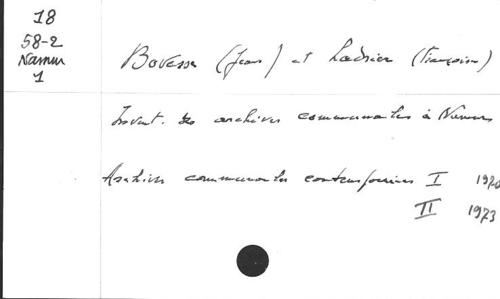 18
58-2
Namur
1
Bovesse (Jean) et Ladrier (Françoise)
Invent. des archives communales à Namur
Archives communales contemporaines I 1970
II 1973